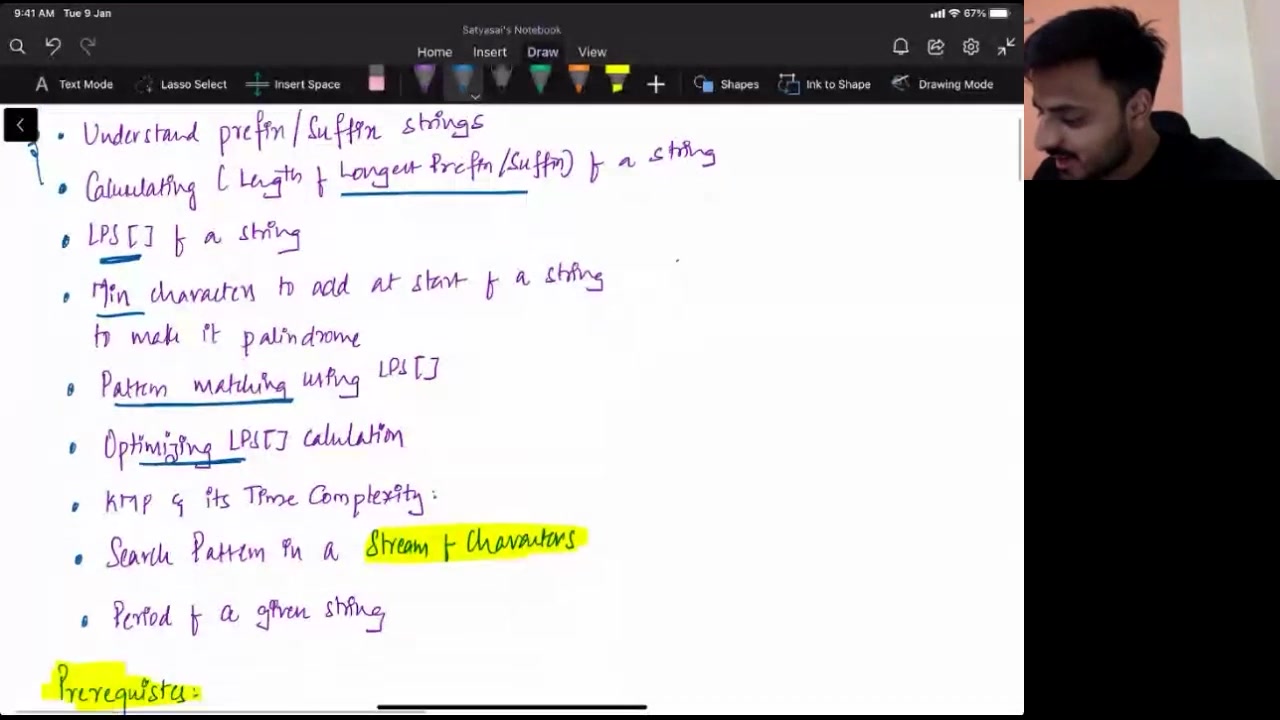 9:41 AM Tue 9 Jan
67%
Satyasai's Notebook
Home Insert Draw View
Text Mode Lasso Select Insert Space Shapes Ink to Shape Drawing Mode
• Understand prefix/Suffix strings
• Calculating (Length of Longest Prefix/Suffix) of a string
• LPS[] of a string
• Min characters to add at start of a string
to make it palindrome
• Pattern matching using LPS[]
• Optimizing LPS[] calulation
• KMP & its Time Complexity:
• Search Pattern in a Stream of Characters
• Period of a given string
Prerequistes: